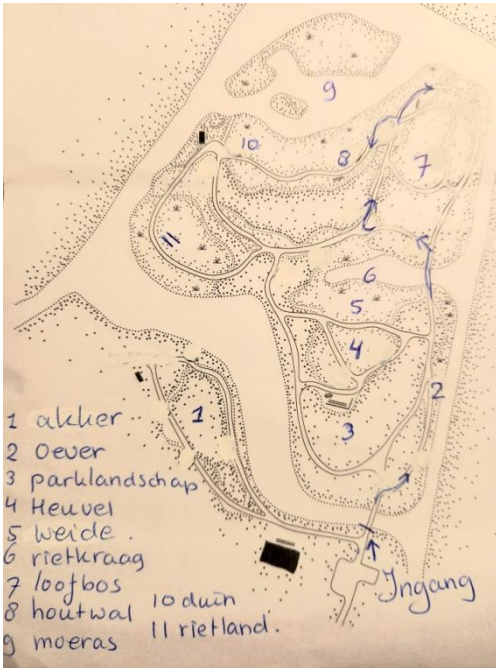 9
10
8
7
11
6
5
4
2
3
1
1 akker
2 Oever
3 parklandschap
4 Heuvel
5 weide.
6 rietkraag
7 loofbos
8 houtwal 10 duin
9 moeras 11 rietland.
Ingang